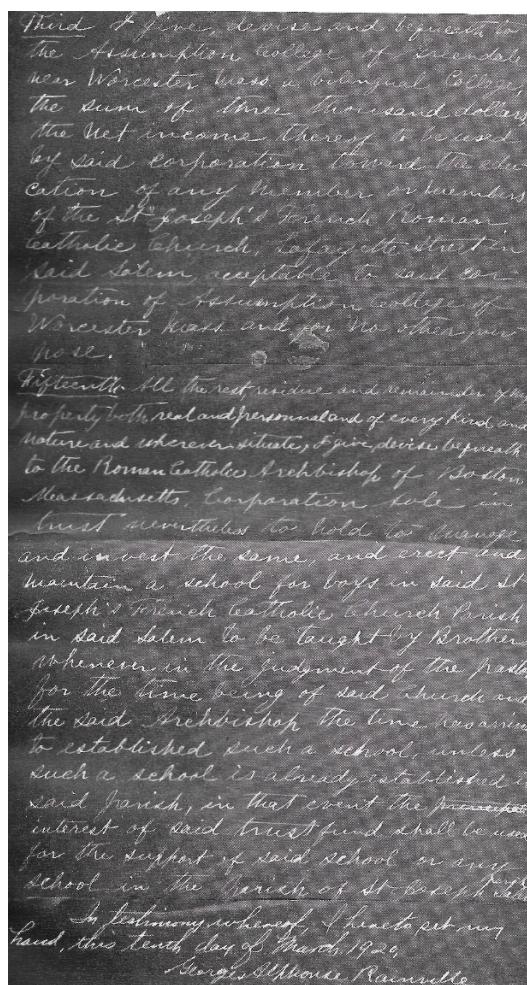 Third I give, devise and bequeath to
the Assumption College of Greendale
near Worcester Mass a bilingual College,
the sum of three thousand dollars
the net income thereof to be used
by said corporation toward the edu
cation of any member or members
of the St Joseph's French Roman
Catholic Church, Lafayette Street in
said Salem, acceptable to said cor-
poration of Assumption College of
Worcester Mass and for no other pur
pose.
Fifteenth All the rest, residue and remainder of my
property both real and personnal and of every kind and
nature and wherever situate, I give, devise bequeath
to the Roman Catholic Archbishop of Boston
Massachusetts, Corporation sole in
trust nevertheless to hold to manage
and invest the same, and erect and
maintain a school for boys in said St
Joseph's French Catholic Church Parish
in said Salem to be taught by Brother
whenever in the judgment of the pasto
for the time being of said church and
the said Archbishop the time has arriv
to established such a school, unless
such a school is already established i
said parish, in that event the
interest of said trust fund shall be used
for the support of said school or any
school in the parish of St Joseph
In testimony whereof, I hereto set my
hand, this tenth day of March 1920,
Georges Alphouse Rainville